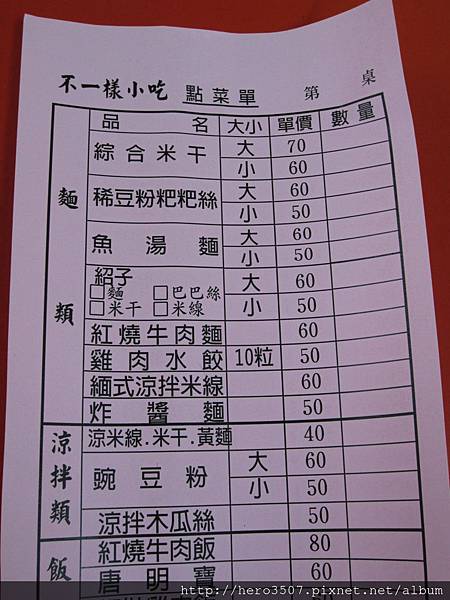 不一樣小吃 點菜單 第 桌
品 名 大小 單價 數量
麵類
綜合米干 大 70
小 60
稀豆粉粑粑絲 大 60
小 50
魚湯麵 大 60
小 50
紹子 大 60
□麵 □巴巴絲
□米干 □米線 小 50
紅燒牛肉麵 60
雞肉水餃 10粒 50
緬式涼拌米線 60
炸醬麵 50
涼拌類
涼米線.米干.黃麵 40
豌豆粉 大 60
小 50
涼拌木瓜絲 50
飯
紅燒牛肉飯 80
唐明寶 60
http://hero3507.pixnet.net/album